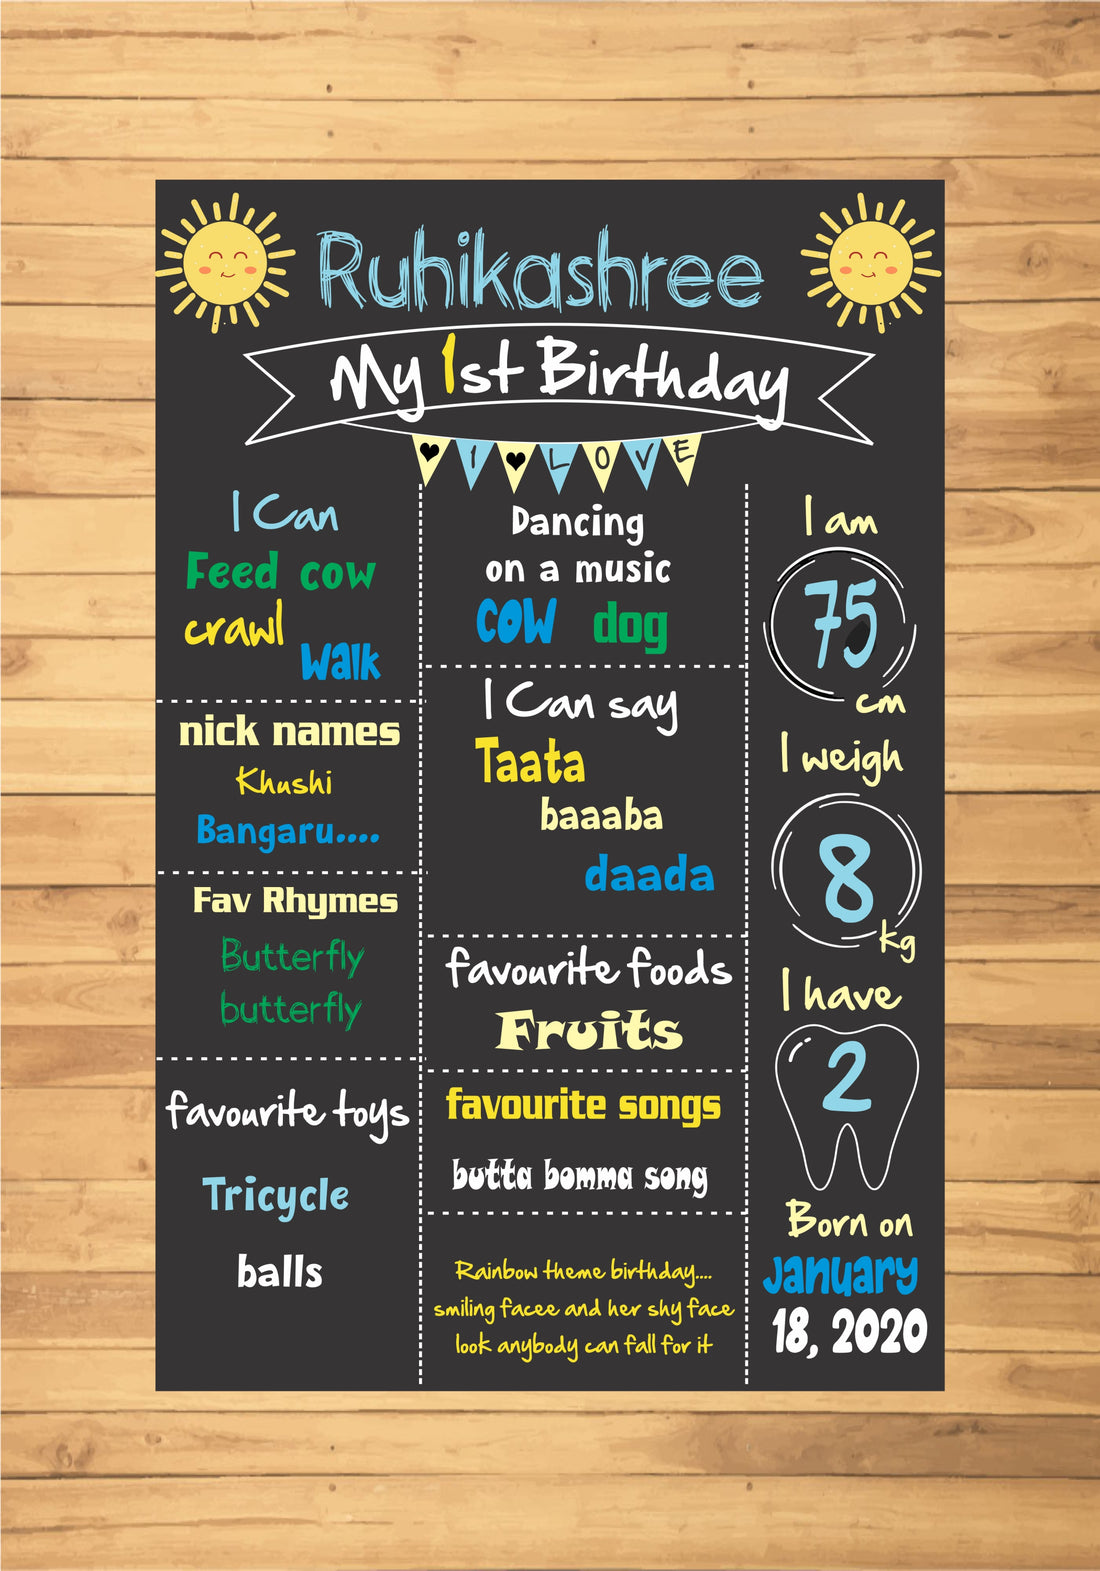 Ruhikashree
My 1st Birthday
♥ 1 ♥ LOVE
I Can
Feed cow
crawl
Walk
nick names
Khushi
Bangaru....
Fav Rhymes
Butterfly
butterfly
favourite toys
Tricycle
balls
Dancing
on a music
cow dog
I Can say
Taata
baaaba
daada
favourite foods
Fruits
favourite songs
butta bomma song
Rainbow theme birthday....
smiling facee and her shy face
look anybody can fall for it
I am
75
cm
I weigh
8
kg
I have
2
Born on
January
18, 2020